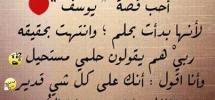 أحب قصة " يوسف "
لأنها بدأت بحلم ؛ وانتهت بحقيقه
ربيْ هم يقولون حلمي مستحيل
وأنا اقول : أنك على كل شي قدير